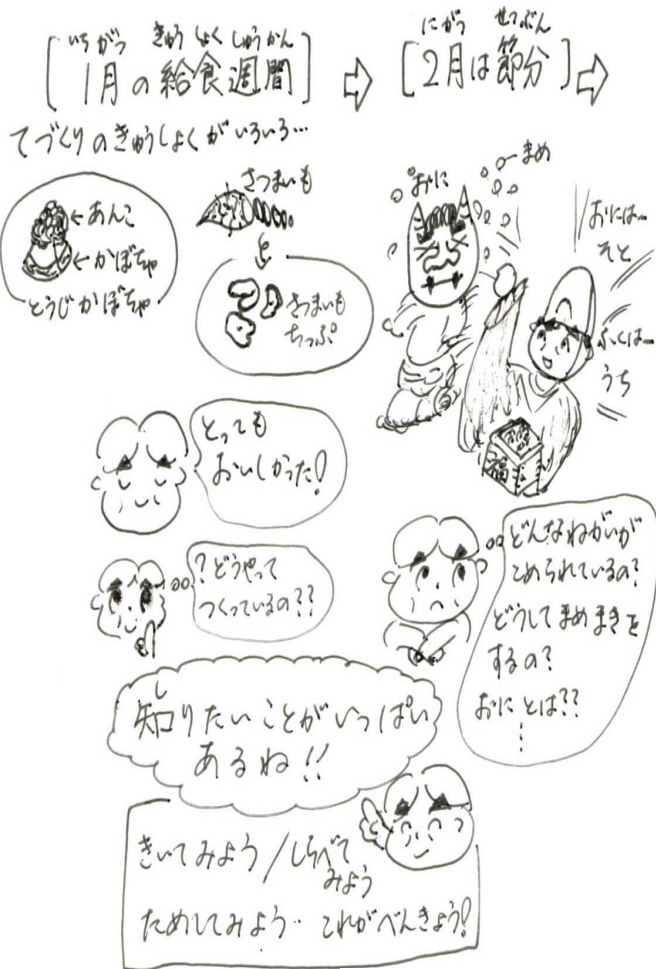 いちがつ きゅうしょくしゅうかん
[1月の給食週間] ⇨
にがつ せつぶん
[2月は節分] ⇨
てづくりのきゅうしょくがいろいろ…
←あんこ
←かぼちゃ
とうじかぼちゃ
さつまいも
さつまいも
ちっぷ
おに
まめ
おには…
そと
ふくは…
うち
福
とっても
おいしかった!
?どうやって
つくっているの??
どんなねがいが
こめられているの?
どうしてまめまきを
するの?
おにとは??
⋮
し
知りたいことがいっぱい
あるね!!
きいてみよう/しらべて
みよう
ためしてみよう‥これがべんきょう!